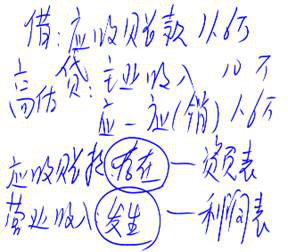 借:应收账款 11.6万
高估 贷:主业收入 10万
应一应(销) 1.6万
应收账款 存在 — 资负表
营业收入 发生 — 利润表